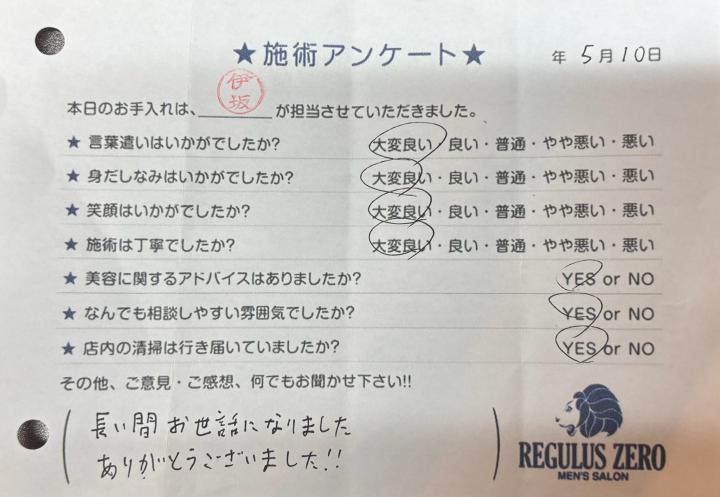 ★施術アンケート★
年 5月10日
本日のお手入れは、伊坂が担当させていただきました。
★ 言葉遣いはいかがでしたか? 大変良い・良い・普通・やや悪い・悪い
★ 身だしなみはいかがでしたか? 大変良い・良い・普通・やや悪い・悪い
★ 笑顔はいかがでしたか? 大変良い・良い・普通・やや悪い・悪い
★ 施術は丁寧でしたか? 大変良い・良い・普通・やや悪い・悪い
★ 美容に関するアドバイスはありましたか? YES or NO
★ なんでも相談しやすい雰囲気でしたか? YES or NO
★ 店内の清掃は行き届いていましたか? YES or NO
その他、ご意見・ご感想、何でもお聞かせ下さい!!
長い間お世話になりました
ありがとうございました!!
REGULUS ZERO
MEN'S SALON